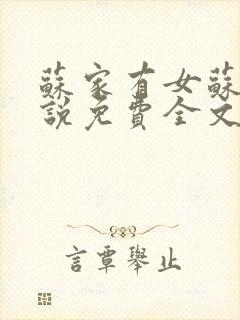 蘇家有女蘇
說免費全文
言覃舉止